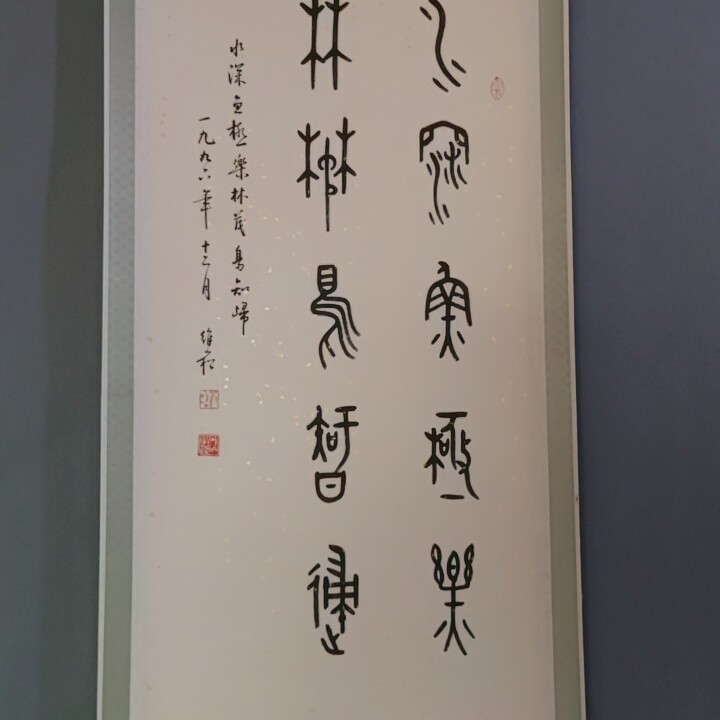 水深魚極樂
林茂鳥知歸
水深魚極樂林茂鳥知歸
一九九六年十二月 維崧